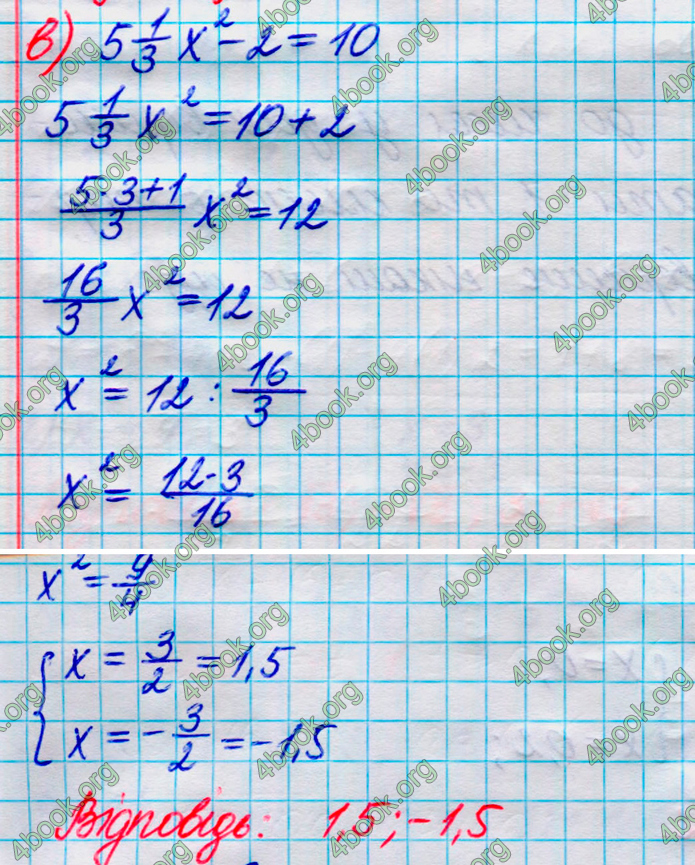 в) 5 1/3 x² - 2 = 10
5 1/3 x² = 10 + 2
5·3+1/3 x² = 12
16/3 x² = 12
x² = 12 : 16/3
x² = 12·3/16
x² = 9/4
{ x = 3/2 = 1,5
x = - 3/2 = -1,5
Відповідь: 1,5; -1,5
4book.org